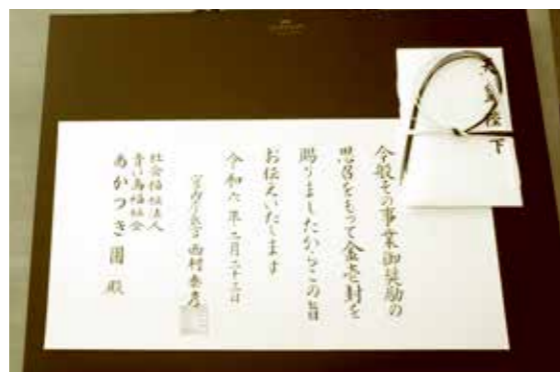 天皇陛下
今般その事業御奨励の
思召をもって金壱封を
賜りましたからこの旨
お伝えいたします
令和六年二月二十三日
宮内庁長官 西村泰彦
社会福祉法人
青い鳥福祉会
あかつき園 殿